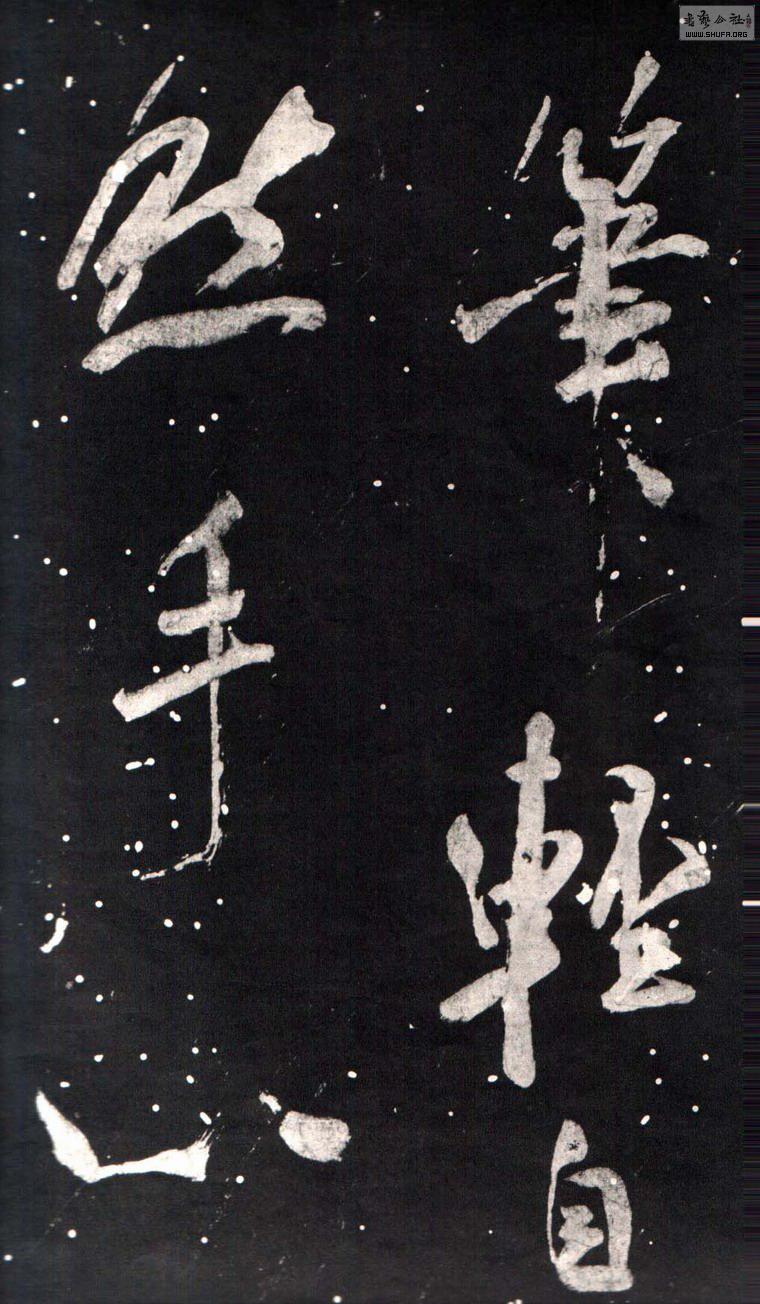 筆輕自
然手心
書藝公社
WWW.SHUFA.ORG